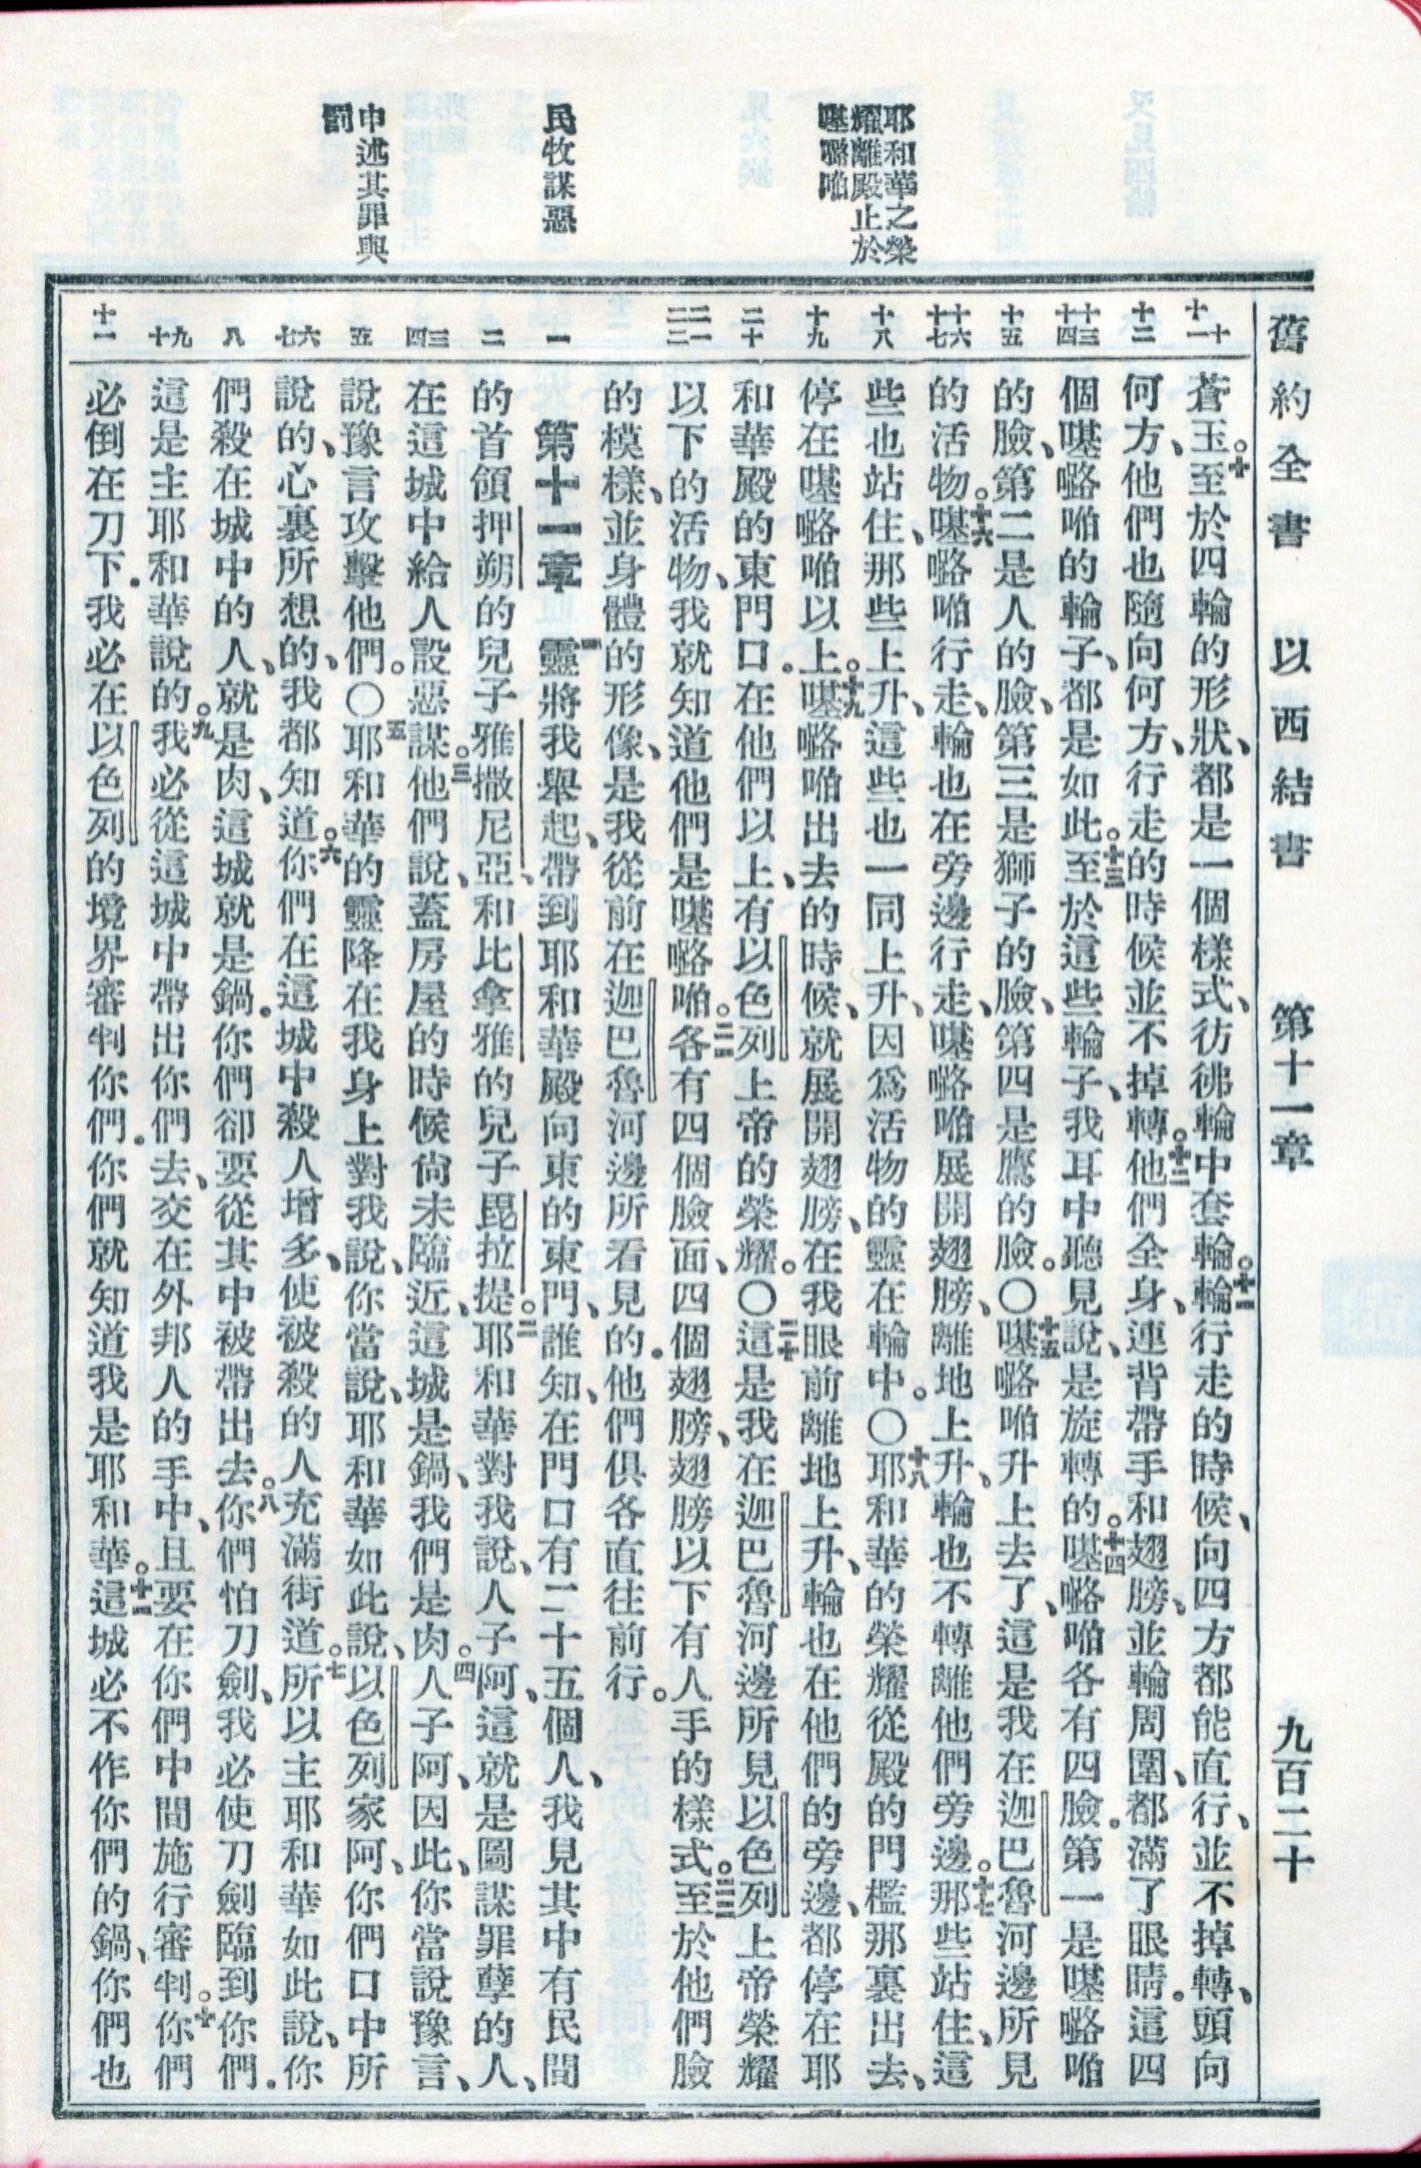 舊約全書 以西結書 第十一章 九百二十
耶和華之榮
耀離殿止於
𠼻𡀩咱
民牧謀惡
申述其罪與
罰
十 十一
十二
十三 十四
十五
十六 十七
十八
十九
二十
二一 二二
一
二
三 四
五
六 七
八
九 十
十一
蒼玉。十至於四輪的形狀、都是一個樣式、彷彿輪中套輪。十一輪行走的時候、向四方都能直行、並不掉轉、頭向
何方、他們也隨向何方、行走的時候並不掉轉。十二他們全身、連背帶手和翅膀、並輪周圍、都滿了眼睛。這四
個𠼻𡀩咱的輪子、都是如此。十三至於這些輪子、我耳中聽見說、是旋轉的。十四𠼻𡀩咱各有四臉。第一是𠼻𡀩咱
的臉、第二是人的臉、第三是獅子的臉、第四是鷹的臉。〇十五𠼻𡀩咱升上去了、這是我在迦巴魯河邊所見
的活物。十六𠼻𡀩咱行走、輪也在旁邊行走、𠼻𡀩咱展開翅膀、離地上升、輪也不轉離他們旁邊。十七那些站住、這
些也站住、那些上升、這些也一同上升、因爲活物的靈在輪中。〇十八耶和華的榮耀從殿的門檻那裏出去、
停在𠼻𡀩咱以上。十九𠼻𡀩咱出去的時候、就展開翅膀、在我眼前離地上升、輪也在他們的旁邊、都停在耶
和華殿的東門口。在他們以上、有以色列上帝的榮耀。〇二十這是我在迦巴魯河邊所見以色列上帝榮耀
以下的活物、我就知道他們是𠼻𡀩咱。二一各有四個臉面、四個翅膀、翅膀以下有人手的樣式。二二至於他們臉
的模樣、並身體的形像、是我從前在迦巴魯河邊所看見的。他們俱各直往前行。
第十一章 一靈將我舉起、帶到耶和華殿向東的東門、誰知、在門口有二十五個人、我見其中有民間
的首領押朔的兒子雅撒尼亞、和比拿雅的兒子毘拉提。二耶和華對我說、人子阿、這就是圖謀罪孽的人、
在這城中給人設惡謀。三他們說、蓋房屋的時候尙未臨近、這城是鍋、我們是肉。四人子阿、因此、你當說豫言、
說豫言攻擊他們。〇五耶和華的靈降在我身上、對我說、你當說、耶和華如此說、以色列家阿、你們口中所
說的、心裏所想的、我都知道。六你們在這城中殺人增多、使被殺的人充滿街道。七所以主耶和華如此說、你
們殺在城中的人、就是肉、這城就是鍋。你們卻要從其中被帶出去。八你們怕刀劍、我必使刀劍臨到你們。
這是主耶和華說的。九我必從這城中帶出你們去、交在外邦人的手中、且要在你們中間施行審判。十你們
必倒在刀下。我必在以色列的境界審判你們。你們就知道我是耶和華。十一這城必不作你們的鍋、你們也